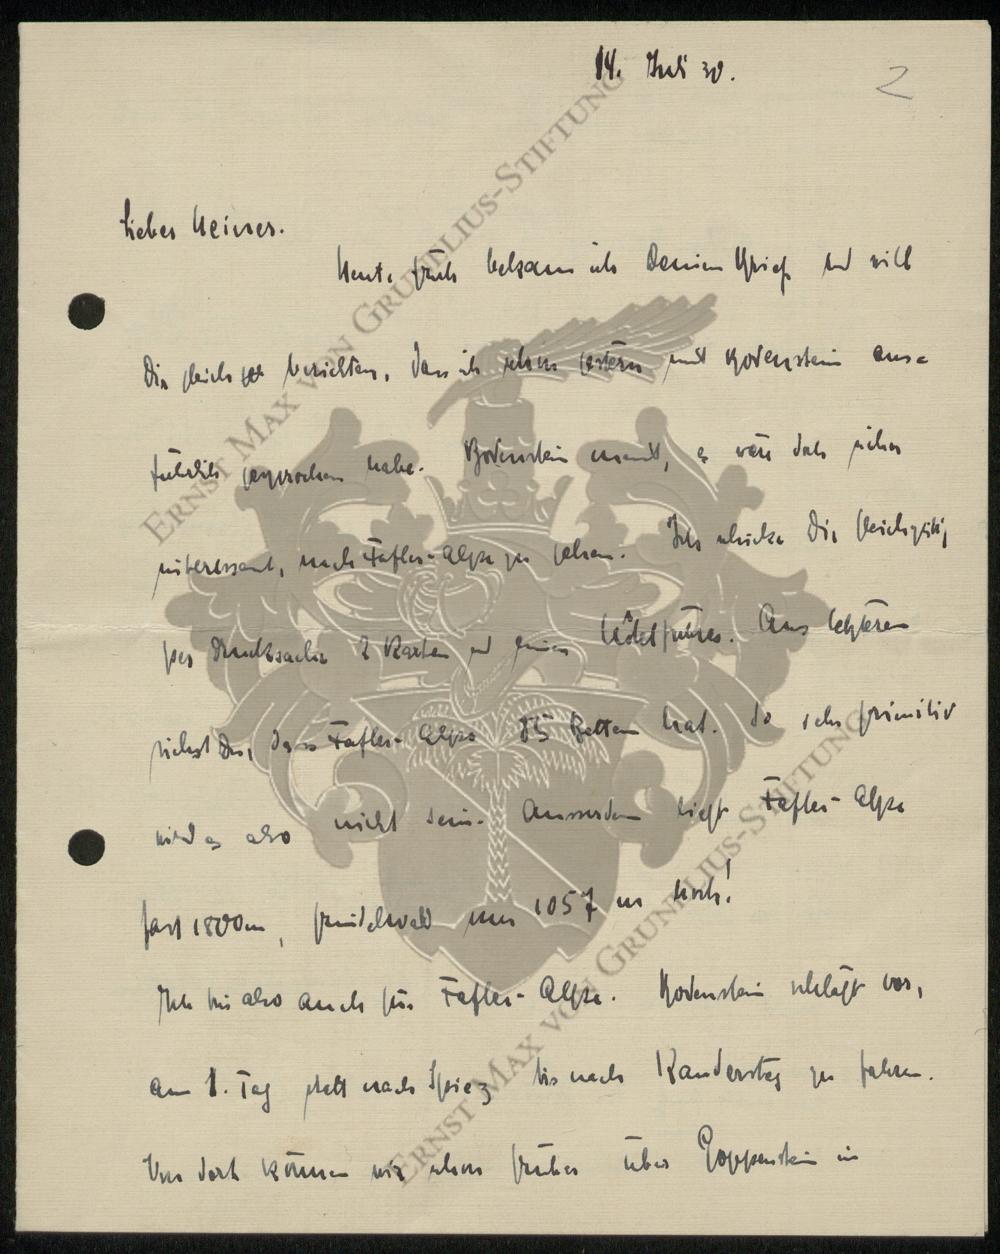 14. Juli 30.
2
Lieber Heiner.
Heute früh bekam ich Deinen Brief und will
Dir gleich berichten, dass ich schon gestern mit Bodenstein aus=
führlich gesprochen habe. Bodenstein meint, es wäre doch sicher
interessant, nach Fafler-Alpe zu gehen. Ich schicke Dir gleichzeitig
per Drucksache 2 Karten und einen Hôtelführer. Aus letzterem
siehst Du, dass Fafler-Alpe 85 Betten hat. So sehr primitiv
wird es also nicht sein. Ausserdem liegt Fafler-Alpe
fast 1800 m, Grindelwald nur 1057 m hoch!
Ich bin also auch für Fafler-Alpe. Bodenstein schlägt vor,
am 1. Tag statt nach Spiez bis nach Kandersteg zu fahren.
Von dort können wir schon früher über Goppenstein in
ERNST MAX VON GRUNELIUS-STIFTUNG
ERNST MAX VON GRUNELIUS-STIFTUNG